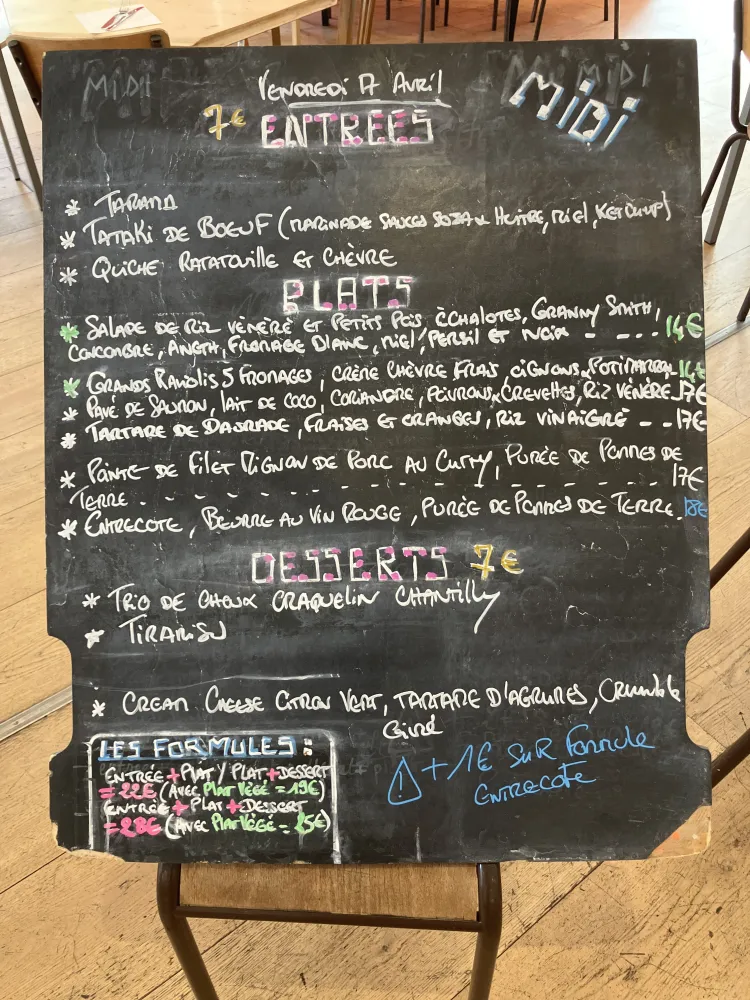 MIDI
MIDI
VENDREDI 17 AVRIL
MIDI
7€ ENTREES
* TARAMA
* TATAKI DE BOEUF (MARINADE SAUCES SOJA & HUITRE, MIEL, KETCHUP)
* QUICHE RATATOUILLE ET CHÈVRE
PLATS
* SALADE DE RIZ VÉNÉRÉ ET PETITS POIS, ÉCHALOTES, GRANNY SMITH,
CONCOMBRE, ANETH, FROMAGE BLANC, MIEL/PERSIL ET NOIX - - - - - 14€
* GRANDS RAVIOLIS 5 FROMAGES, CRÈME CHÈVRE FRAIS, OIGNONS, POTIMARRON 14€
* PAVÉ DE SAUMON, LAIT DE COCO, CORIANDRE, POIVRONS, CREVETTES, RIZ VÉNÉRÉ 17€
* TARTARE DE DAURADE, FRAISES ET ORANGES, RIZ VINAIGRÉ - - 17€
* POINTE DE FILET MIGNON DE PORC AU CURRY, PURÉE DE POMMES DE
TERRE - - - - - - - - - - - - - 17€
* ENTRECOTE, BEURRE AU VIN ROUGE, PURÉE DE POMMES DE TERRE. 18€
DESSERTS 7€
* TRIO DE CHOUX CRAQUELIN CHANTILLY
* TIRAMISU
* CREAM CHEESE CITRON VERT, TARTARE D'AGRUMES, CRUMBLE
LES FORMULES :
ENTRÉE + PLAT / PLAT + DESSERT
= 22€ (AVEC PLAT VÉGÉ = 19€)
ENTRÉE + PLAT + DESSERT
= 28€ (AVEC PLAT VÉGÉ = 25€)
⚠ + 1€ SUR FORMULE
ENTRECOTE